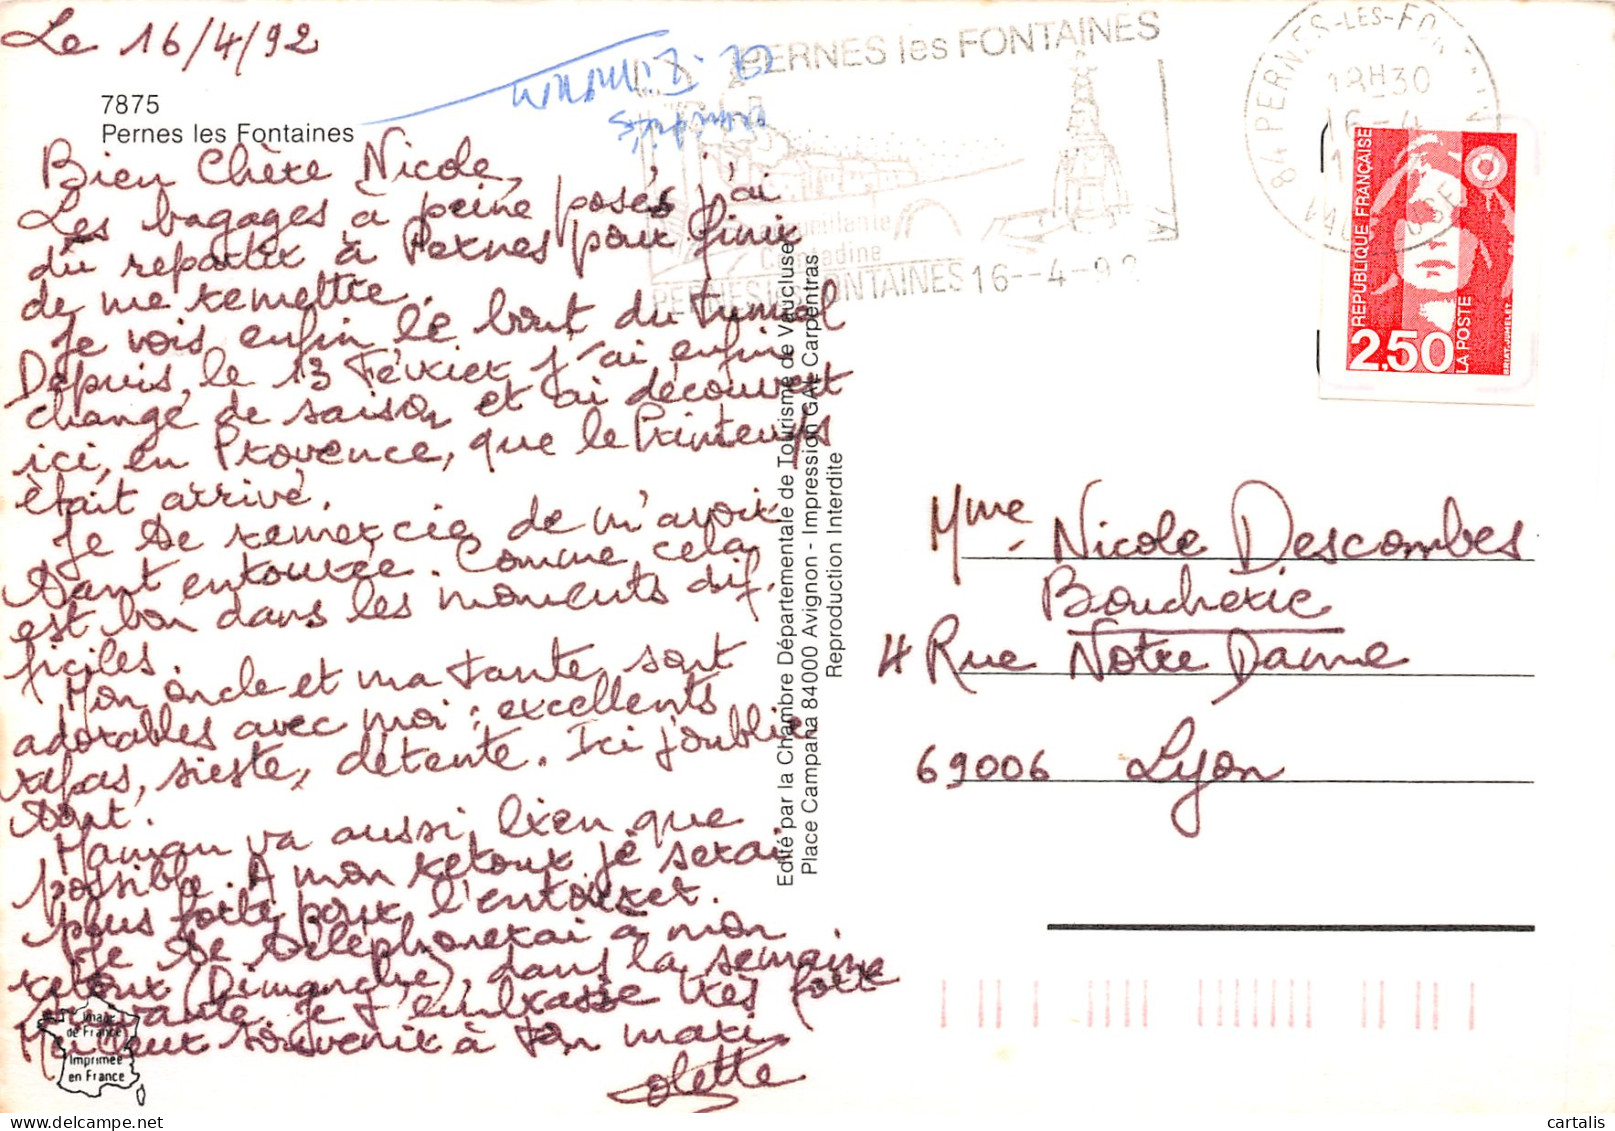 Le 16/4/92
7875
Pernes les Fontaines
Bien Chère Nicole,
Les bagages à peine posés j'ai
dû repartir à Pernes pour finir
de me remettre.
Je vois enfin le bout du tunnel
Depuis le 13 Février j'ai enfin
changé de saison et ai découvert
ici, en Provence, que le Printemps
était arrivé.
Je te remercie de m'avoir
tant entourée. Comme cela
est bon dans les moments dif-
ficiles.
Mon oncle et ma tante sont
adorables avec moi : excellents
repas, sieste, détente. Ici j'oublie
tout.
Maman va aussi bien que
possible. A mon retour je serai
plus forte pour l'entourer.
Je te téléphonerai à mon
retour (Dimanche), dans la semaine
suivante. Je t'embrasse très fort
Meilleur souvenir à ton mari
Colette
Image
de France
Imprimée
en France
Edité par la Chambre Départementale de Tourisme de Vaucluse
Place Campana 84000 Avignon - Impression GAL Carpentras
Reproduction Interdite
PERNES les FONTAINES
accueillante
Comtadine
PERNES les FONTAINES 16--4-92
84 PERNES-LES-FONTAINES
18H30
16-4
VAUCLUSE
REPUBLIQUE FRANÇAISE
2,50
LA POSTE
BRIAT-JUMELET
Mme Nicole Descombes
Boucherie
4 Rue Notre Dame
69006 Lyon